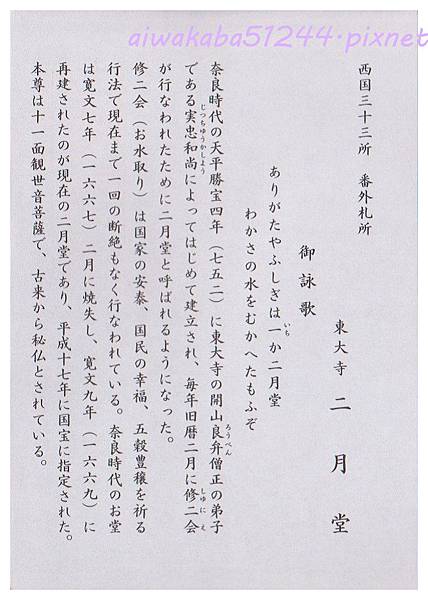 aiwakaba51244.pixnet
西国三十三所　番外札所
東大寺　二月堂
御詠歌
ありがたやふしぎは一か二月堂
いち
わかさの水をむかへたもふぞ
奈良時代の天平勝宝四年（七五二）に東大寺の開山良弁僧正の弟子
ろうべん
である実忠和尚によってはじめて建立され、毎年旧暦二月に修二会
じつちゆうかしよう
しゆにえ
が行なわれたために二月堂と呼ばれるようになった。
修二会（お水取り）は国家の安泰、国民の幸福、五穀豊穣を祈る
行法で現在まで一回の断絶もなく行なわれている。奈良時代のお堂
は寛文七年（一六六七）二月に焼失し、寛文九年（一六六九）に
再建されたのが現在の二月堂であり、平成十七年に国宝に指定された。
本尊は十一面観世音菩薩で、古来から秘仏とされている。